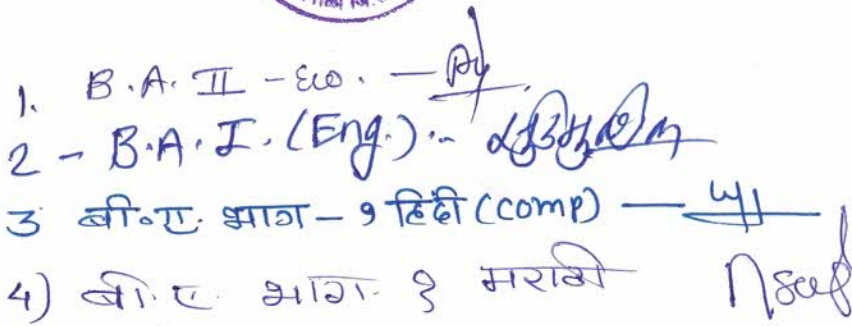 1. B.A. II - Eco. -
2 - B.A. I. (Eng.) -
3 बी०ए. भाग - १ हिंदी (comp) —
4) बी. ए. भाग. १ मराठी